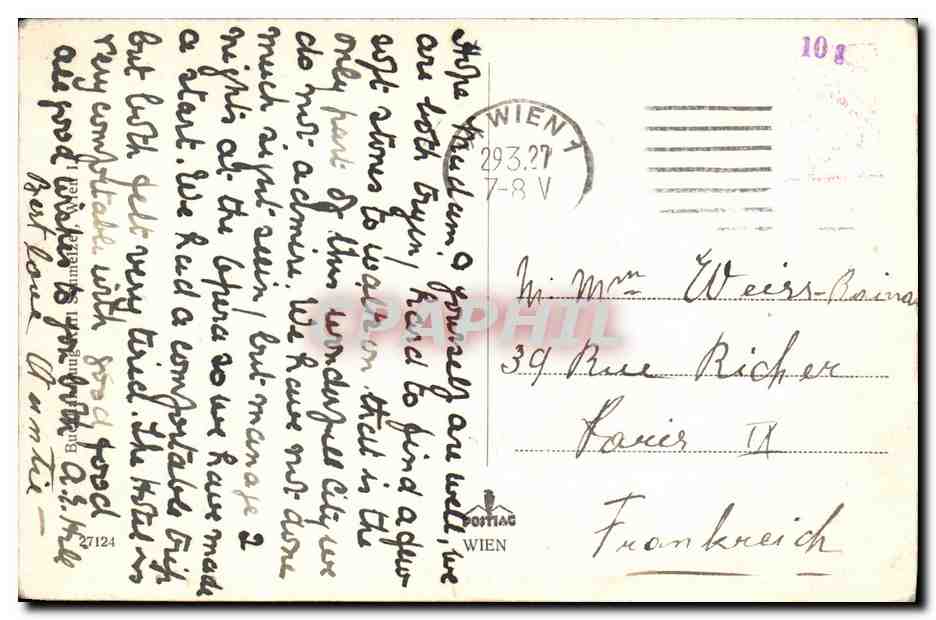 Hope Madam & yourself are well, we
are both tryin/ hard to find a few
soft stones to walk on. that is the
only part of this wonderfull City we
do not admire. We have not done
much sight seein/ but manage 2
nights at the opera so we have made
a start. We had a comfortable trip
but both felt very tired. The Hotel is
very comfortable with good food
all good wishes to you both
Best love Auntie —
27124
WIEN 1
29.3.27
7-8 V
10 g
M. Mme Weiss-
39 Rue Richer
Paris IX
Frankreich
POSTIAG
WIEN
CPAPHIL